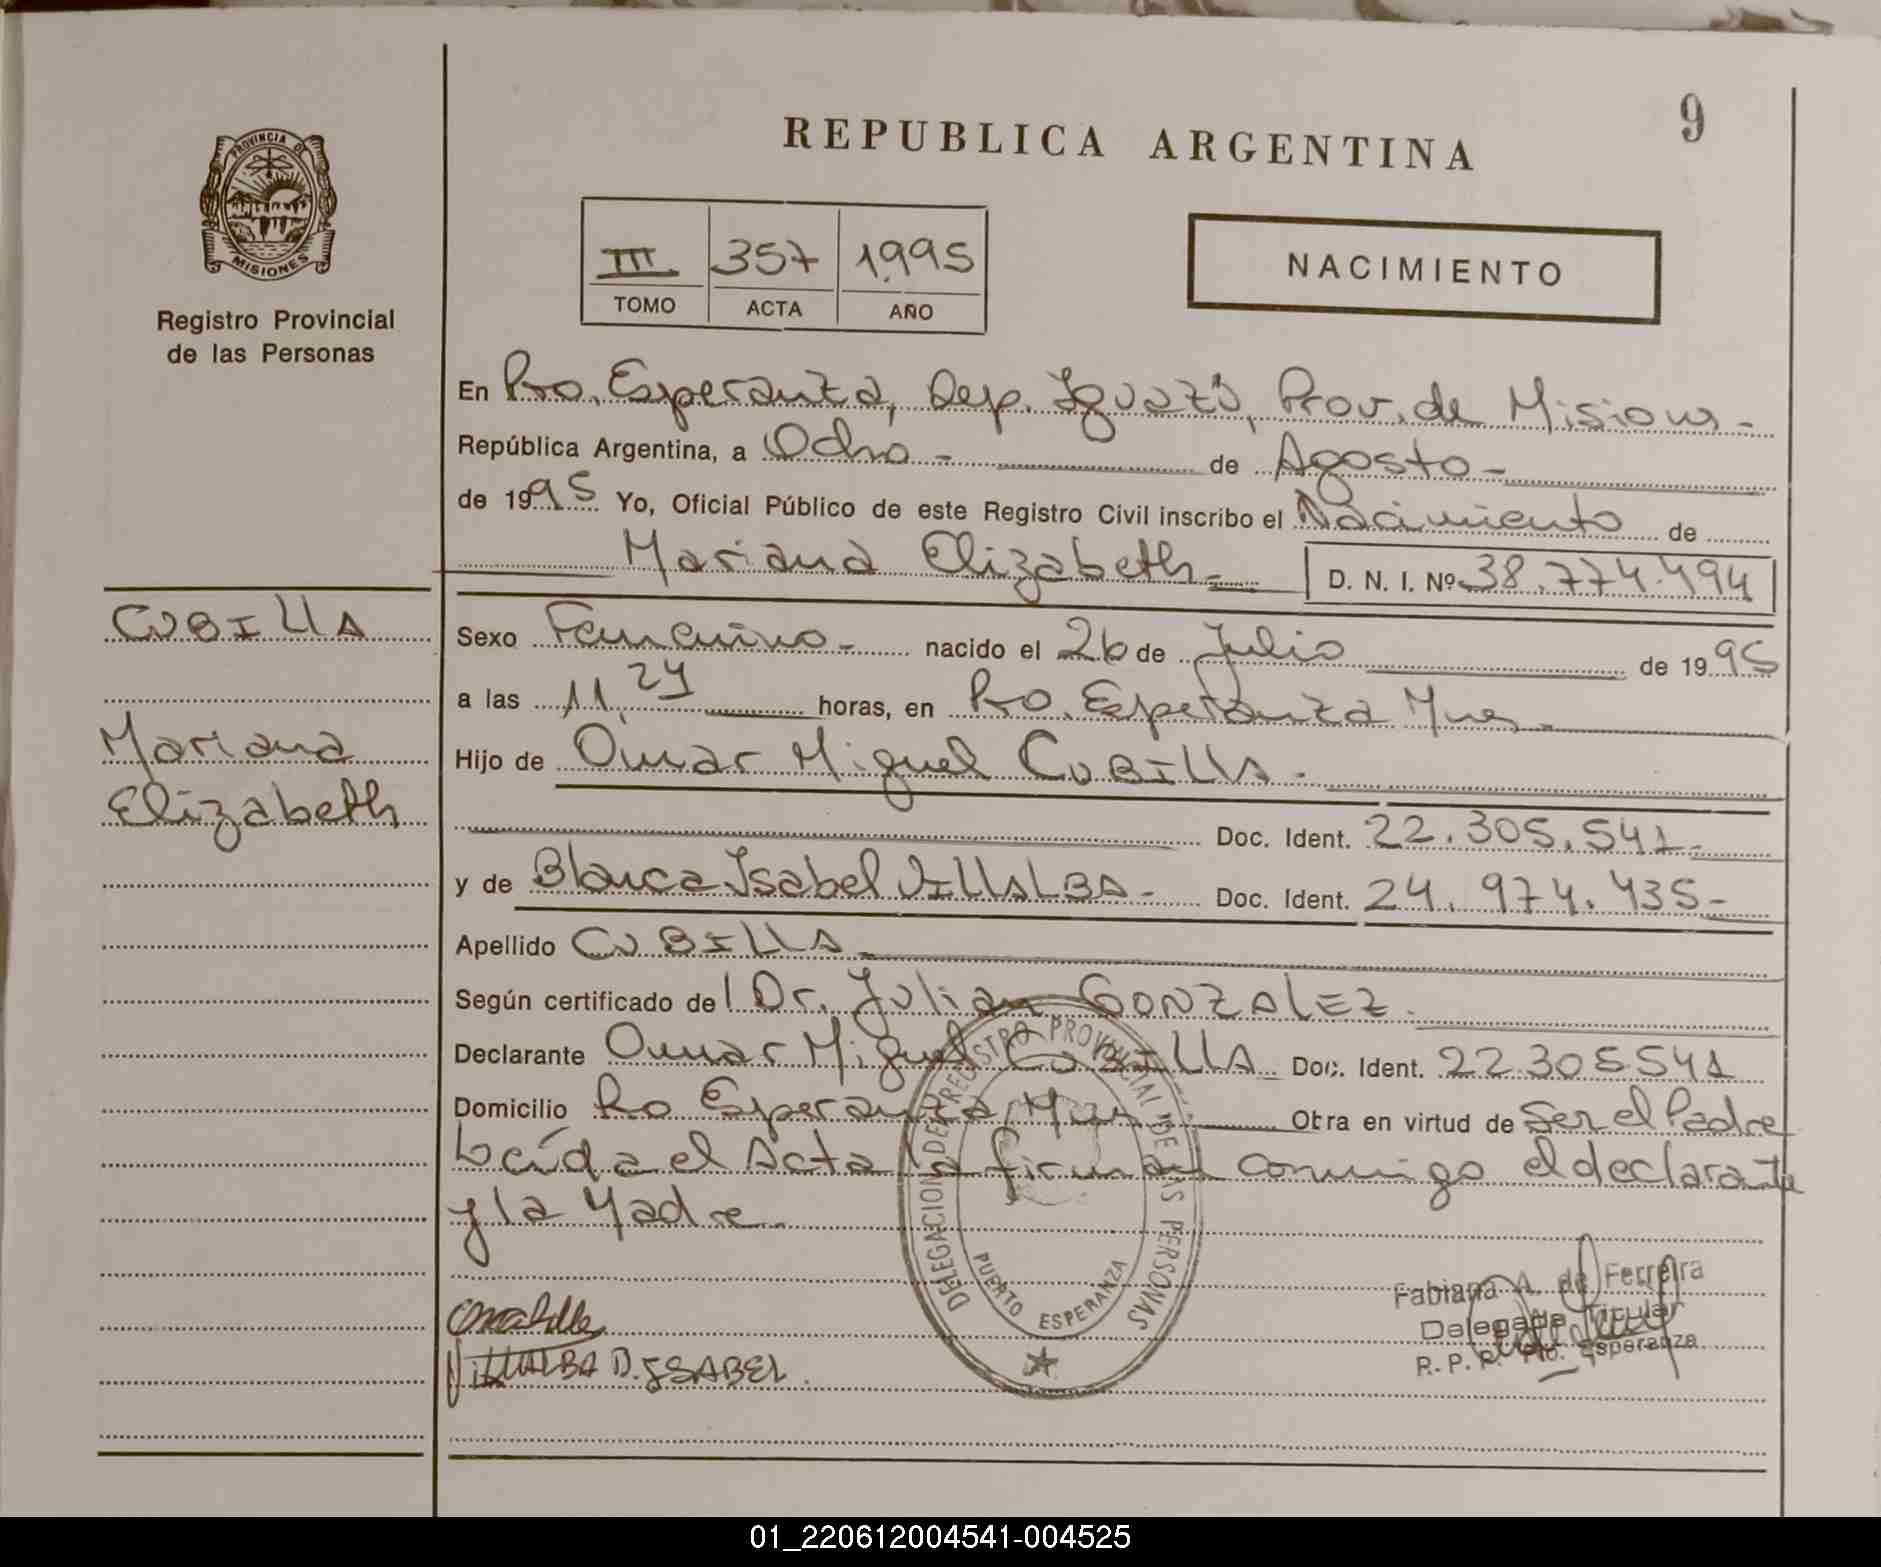 9
REPUBLICA ARGENTINA
PROVINCIA DE
MISIONES
Registro Provincial
de las Personas
III 357 1995
TOMO ACTA AÑO
NACIMIENTO
En Pto. Esperanza, Dep. Iguazú, Prov. de Misiones -
República Argentina, a Ocho - de Agosto -
de 1995 Yo, Oficial Público de este Registro Civil inscribo el Nacimiento de
Mariana Elizabeth - D. N. I. Nº 38.774.494
CUBILLA
Sexo Femenino - nacido el 26 de Julio de 1995
a las 11,24 horas, en Pto. Esperanza Mnes -
Mariana
Elizabeth
Hijo de Omar Miguel CUBILLA -
Doc. Ident. 22.305.541 -
y de Blanca Isabel VILLALBA - Doc. Ident. 24.974.435 -
Apellido CUBILLA
Según certificado de Dr. Julian GONZALEZ
Declarante Omar Miguel CUBILLA Doc. Ident. 22305541
Domicilio Pto Esperanza Mnes Otra en virtud de Ser el Padre
Leída el Acta la firman conmigo el declarante
y la Madre
DELEGACION DEL REGISTRO PROVINCIAL DE LAS PERSONAS
PUERTO ESPERANZA
Fabiana A. de Ferreira
Delegada Titular
R. P. P. Pto. Esperanza
VILLALBA B. ISABEL
01_220612004541-004525